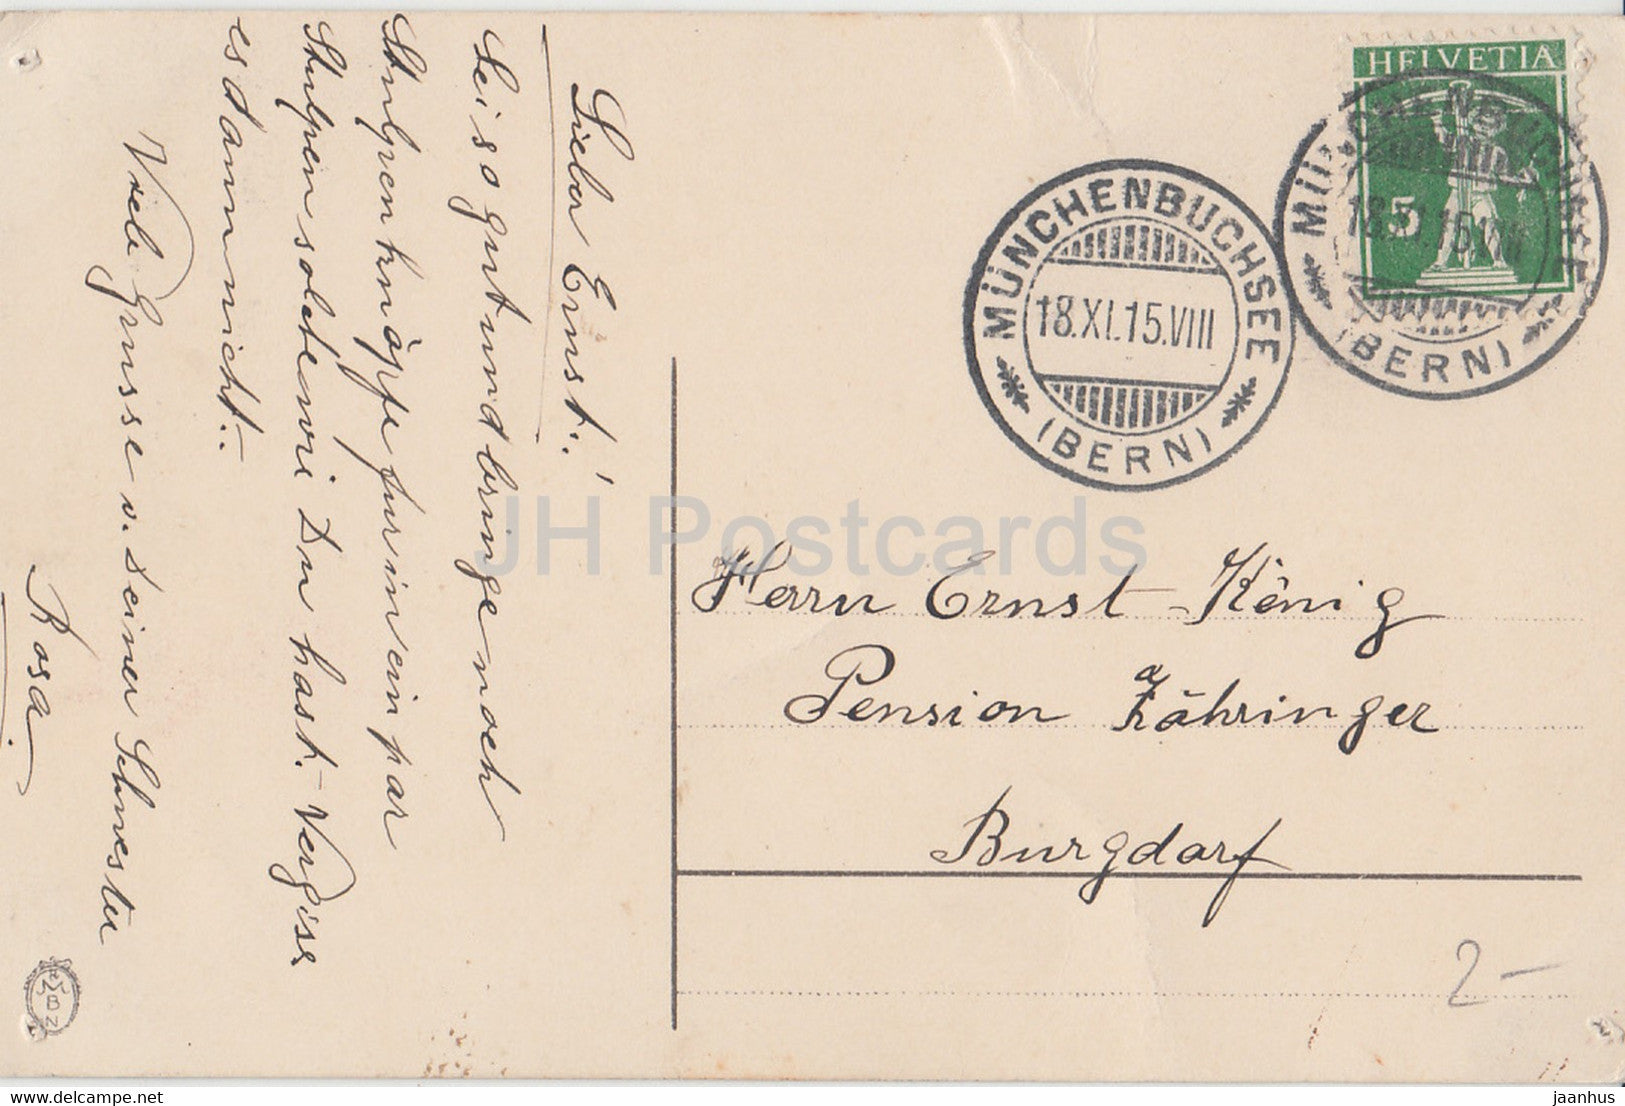 Lieber Ernst!
Sei so gut und bringe noch
Stulpenknöpfe fur in ein par
Stulpen solche wie Du hast. Vergiss
es dann nicht.-
Viele Grusse v. Deiner Schwester
Rosa.
HELVETIA
5
MÜNCHENBUCHSEE
18.XI.15.VIII
(BERN)
MÜNCHENBUCHSEE
18.XI.15.VIII
(BERN)
Herrn Ernst König
Pension z. Zähringer
Burgdorf
2-
MBN
JH Postcards
delcampe.net
jaanhus